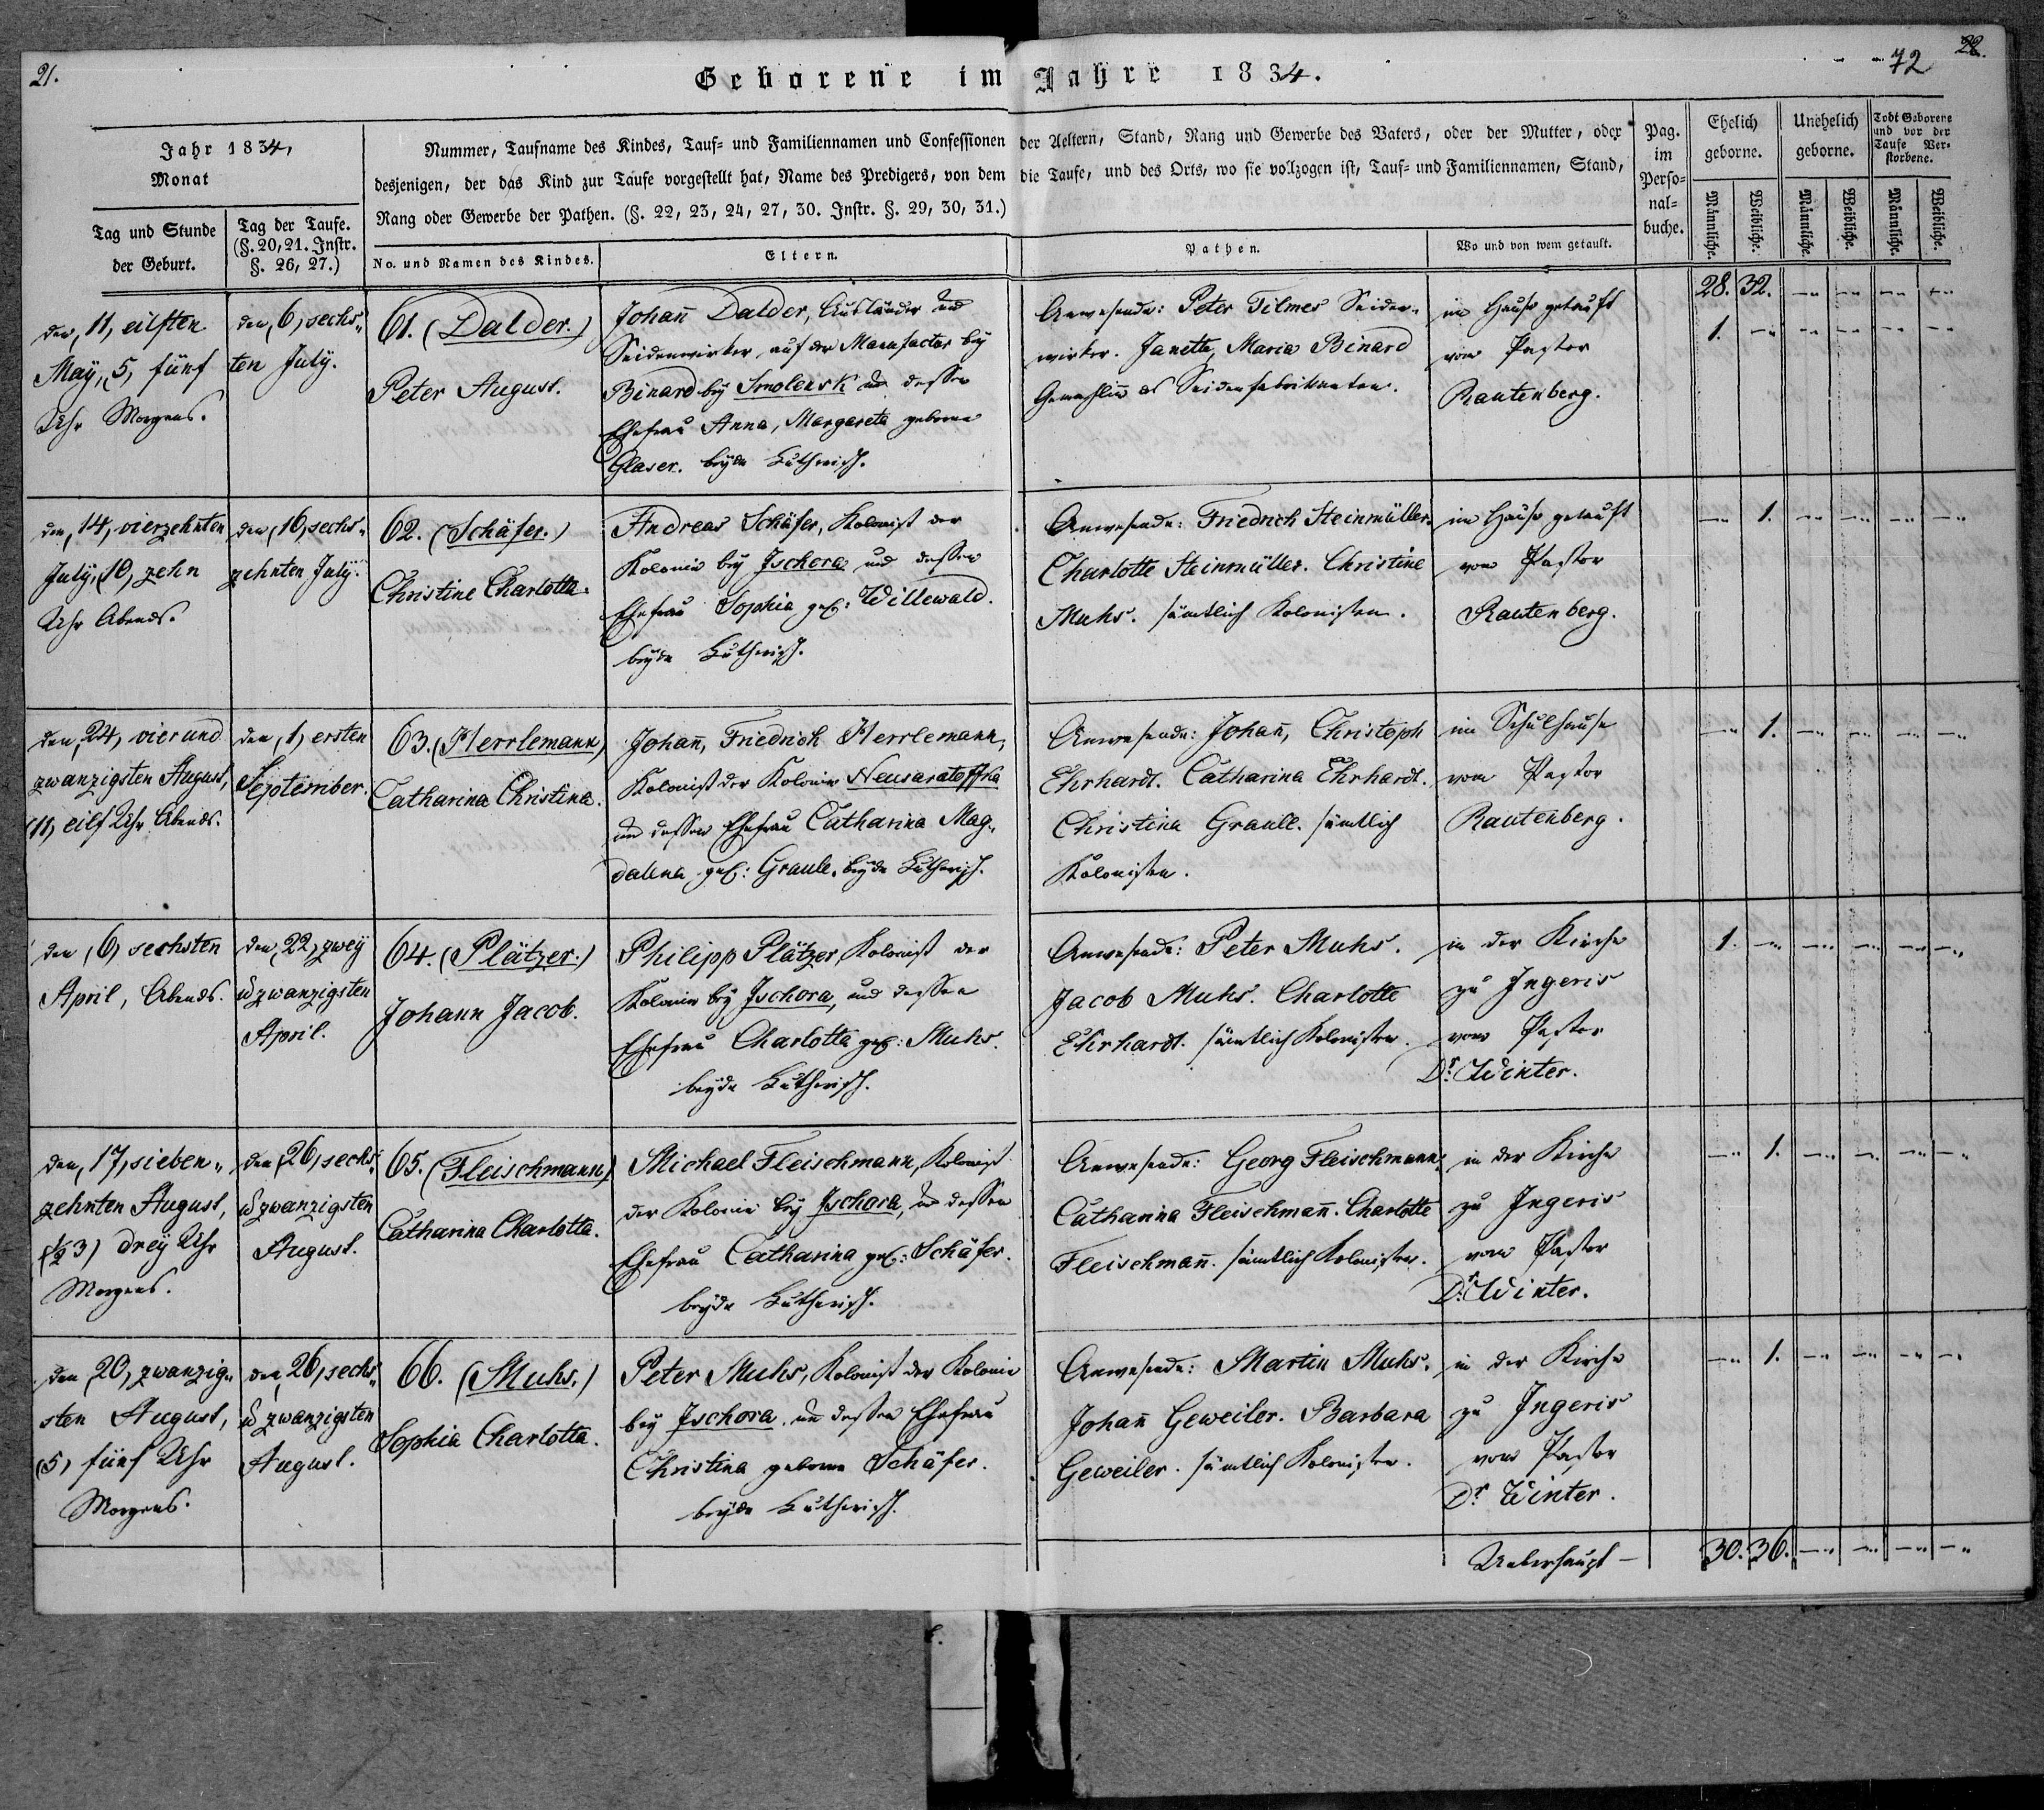 21.
Geborene im Jahre 1834.
72
22.
Jahr 1834,
Monat
Tag und Stunde
der Geburt.
Tag der Taufe.
(§. 20, 21. Instr.
§. 26, 27.)
Nummer, Taufname des Kindes, Tauf- und Familiennamen und Confessionen der Aeltern, Stand, Rang und Gewerbe des Vaters, oder der Mutter, oder
desjenigen, der das Kind zur Taufe vorgestellt hat, Name des Predigers, von dem die Taufe, und des Orts, wo sie vollzogen ist, Tauf- und Familiennamen, Stand,
Rang oder Gewerbe der Pathen. (§. 22, 23, 24, 27, 30. Instr. §. 29, 30, 31.)
No. und Namen des Kindes.
Eltern.
Pathen.
Wo und von wem getauft.
Pag.
im
Perso-
nal-
buche.
Ehelich
geborne.
Unehelich
geborne.
Todt Geborene
und vor der
Taufe Ver-
storbene.
Männliche.
Weibliche.
Männliche.
Weibliche.
Männliche.
Weibliche.
28. 32. — — — —
den, 11, eilften
May, 5, fünf
Uhr Morgens.
den, 6, sechs„
ten July.
61. (Dalder.)
Peter August.
Johann̄ Dalder, Ausländer und
Seidenwirker auf der Manufactur bey
Binard bey Smolensk und dessen
Ehefrau Anna, Margareta geborne
Glaser. beyde Lutherisch.
Anwesende: Peter Tilmes Seiden„
wirker. Janette, Maria Binard
Gemahlin des Seidenfabrikanten.
im Hause getauft
vom Pastor
Rautenberg.
1. — — — — —
den, 14, vierzehnten
July, (10, zehn
Uhr Abends.
den, 16, sechs„
zehnten July.
62. (Schäfer.)
Christine Charlotta.
Andreas Schäfer, Kolonist der
Kolonie bey Jschora und dessen
Ehefrau Sophia geb: Willewald.
beyde Lutherisch.
Anwesende: Friedrich Steinmüller.
Charlotte Steinmüller. Christine
Muhs. sämtlich Kolonisten.
im Hause getauft
vom Pastor
Rautenberg.
— 1. — — — —
den, 24, vier und
zwanzigsten August,
(11, eilf Uhr Abends.
den, 1, ersten
September.
63. (Herrlemann)
Catharina Christina.
Johann̄, Friedrich Herrlemann,
Kolonist der Kolonie Neusaratoffka
und dessen Ehefrau Catharina Mag„
dalena geb: Graule. beyde Lutherisch.
Anwesende: Johann̄, Christoph
Ehrhardt. Catharina Ehrhardt.
Christina Graule. sämtlich
Kolonisten.
im Schulhause
vom Pastor
Rautenberg.
— 1. — — — —
den, 6, sechsten
April, Abends.
den, 22, zwey
u zwanzigsten
April.
64. (Plätzer.)
Johann Jacob.
Philipp Plätzer, Kolonist der
Kolonie bey Jschora, und dessen
Ehefrau Charlotta geb: Muhs.
beyde Lutherisch.
Anwesende: Peter Muhs.
Jacob Muhs. Charlotte
Ehrhardt. sämtlich Kolonisten.
in der Kirche
zu Jngeris
vom Pastor
Dr: Winter.
1. — — — — —
den, 17, sieben„
zehnten August,
(½ 3) drey Uhr
Morgens.
den, 26, sechs„
u zwanzigsten
August.
65. (Fleischmann)
Catharina Charlotta.
Michael Fleischmann, Kolonist
der Kolonie bey Jschora, und dessen
Ehefrau Catharina geb: Schäfer.
beyde Lutherisch.
Anwesende: Georg Fleischmann.
Catharina Fleischmann̄. Charlotte
Fleischmann̄. sämtlich Kolonisten.
in der Kirche
zu Jngeris
vom Pastor
Dr: Winter.
— 1. — — — —
den, 20, zwanzig„
sten August,
(5, fünf Uhr
Morgens.
den, 26, sechs„
u zwanzigsten
August.
66. (Muhs.)
Sophia Charlotta.
Peter Muhs, Kolonist der Kolonie
bey Jschora und dessen Ehefrau
Christina geborne Schäfer.
beyde Lutherisch.
Anwesende: Martin Muhs.
Johann̄ Geweiler. Barbara
Geweiler. sämtlich Kolonisten.
in der Kirche
zu Jngeris
vom Pastor
Dr Winter.
— 1. — — — —
Ueberhaupt — 30. 36. — — — —